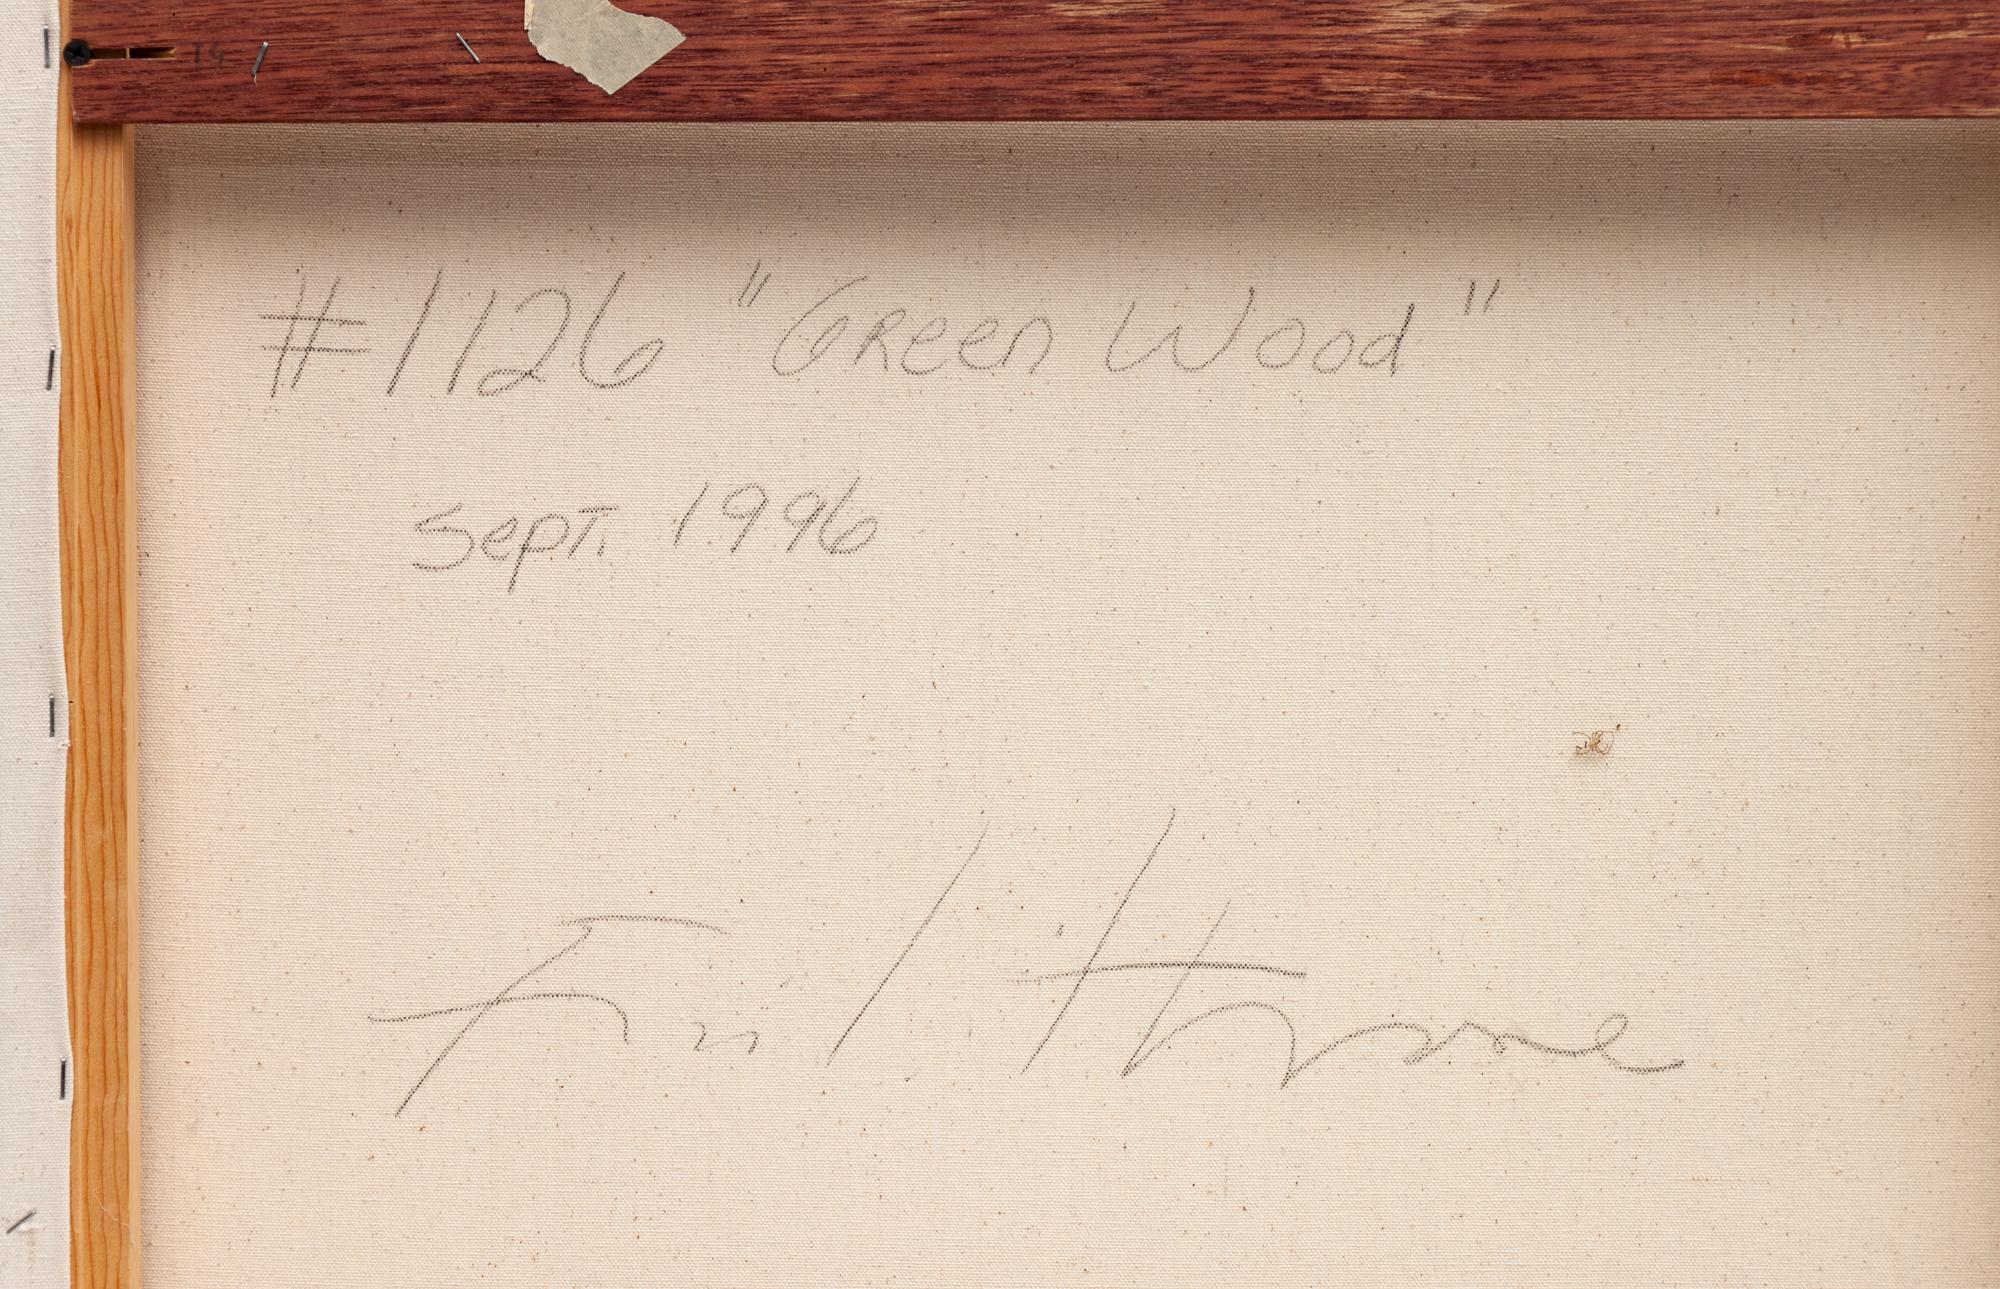 #1126 "Green Wood"
Sept. 1996